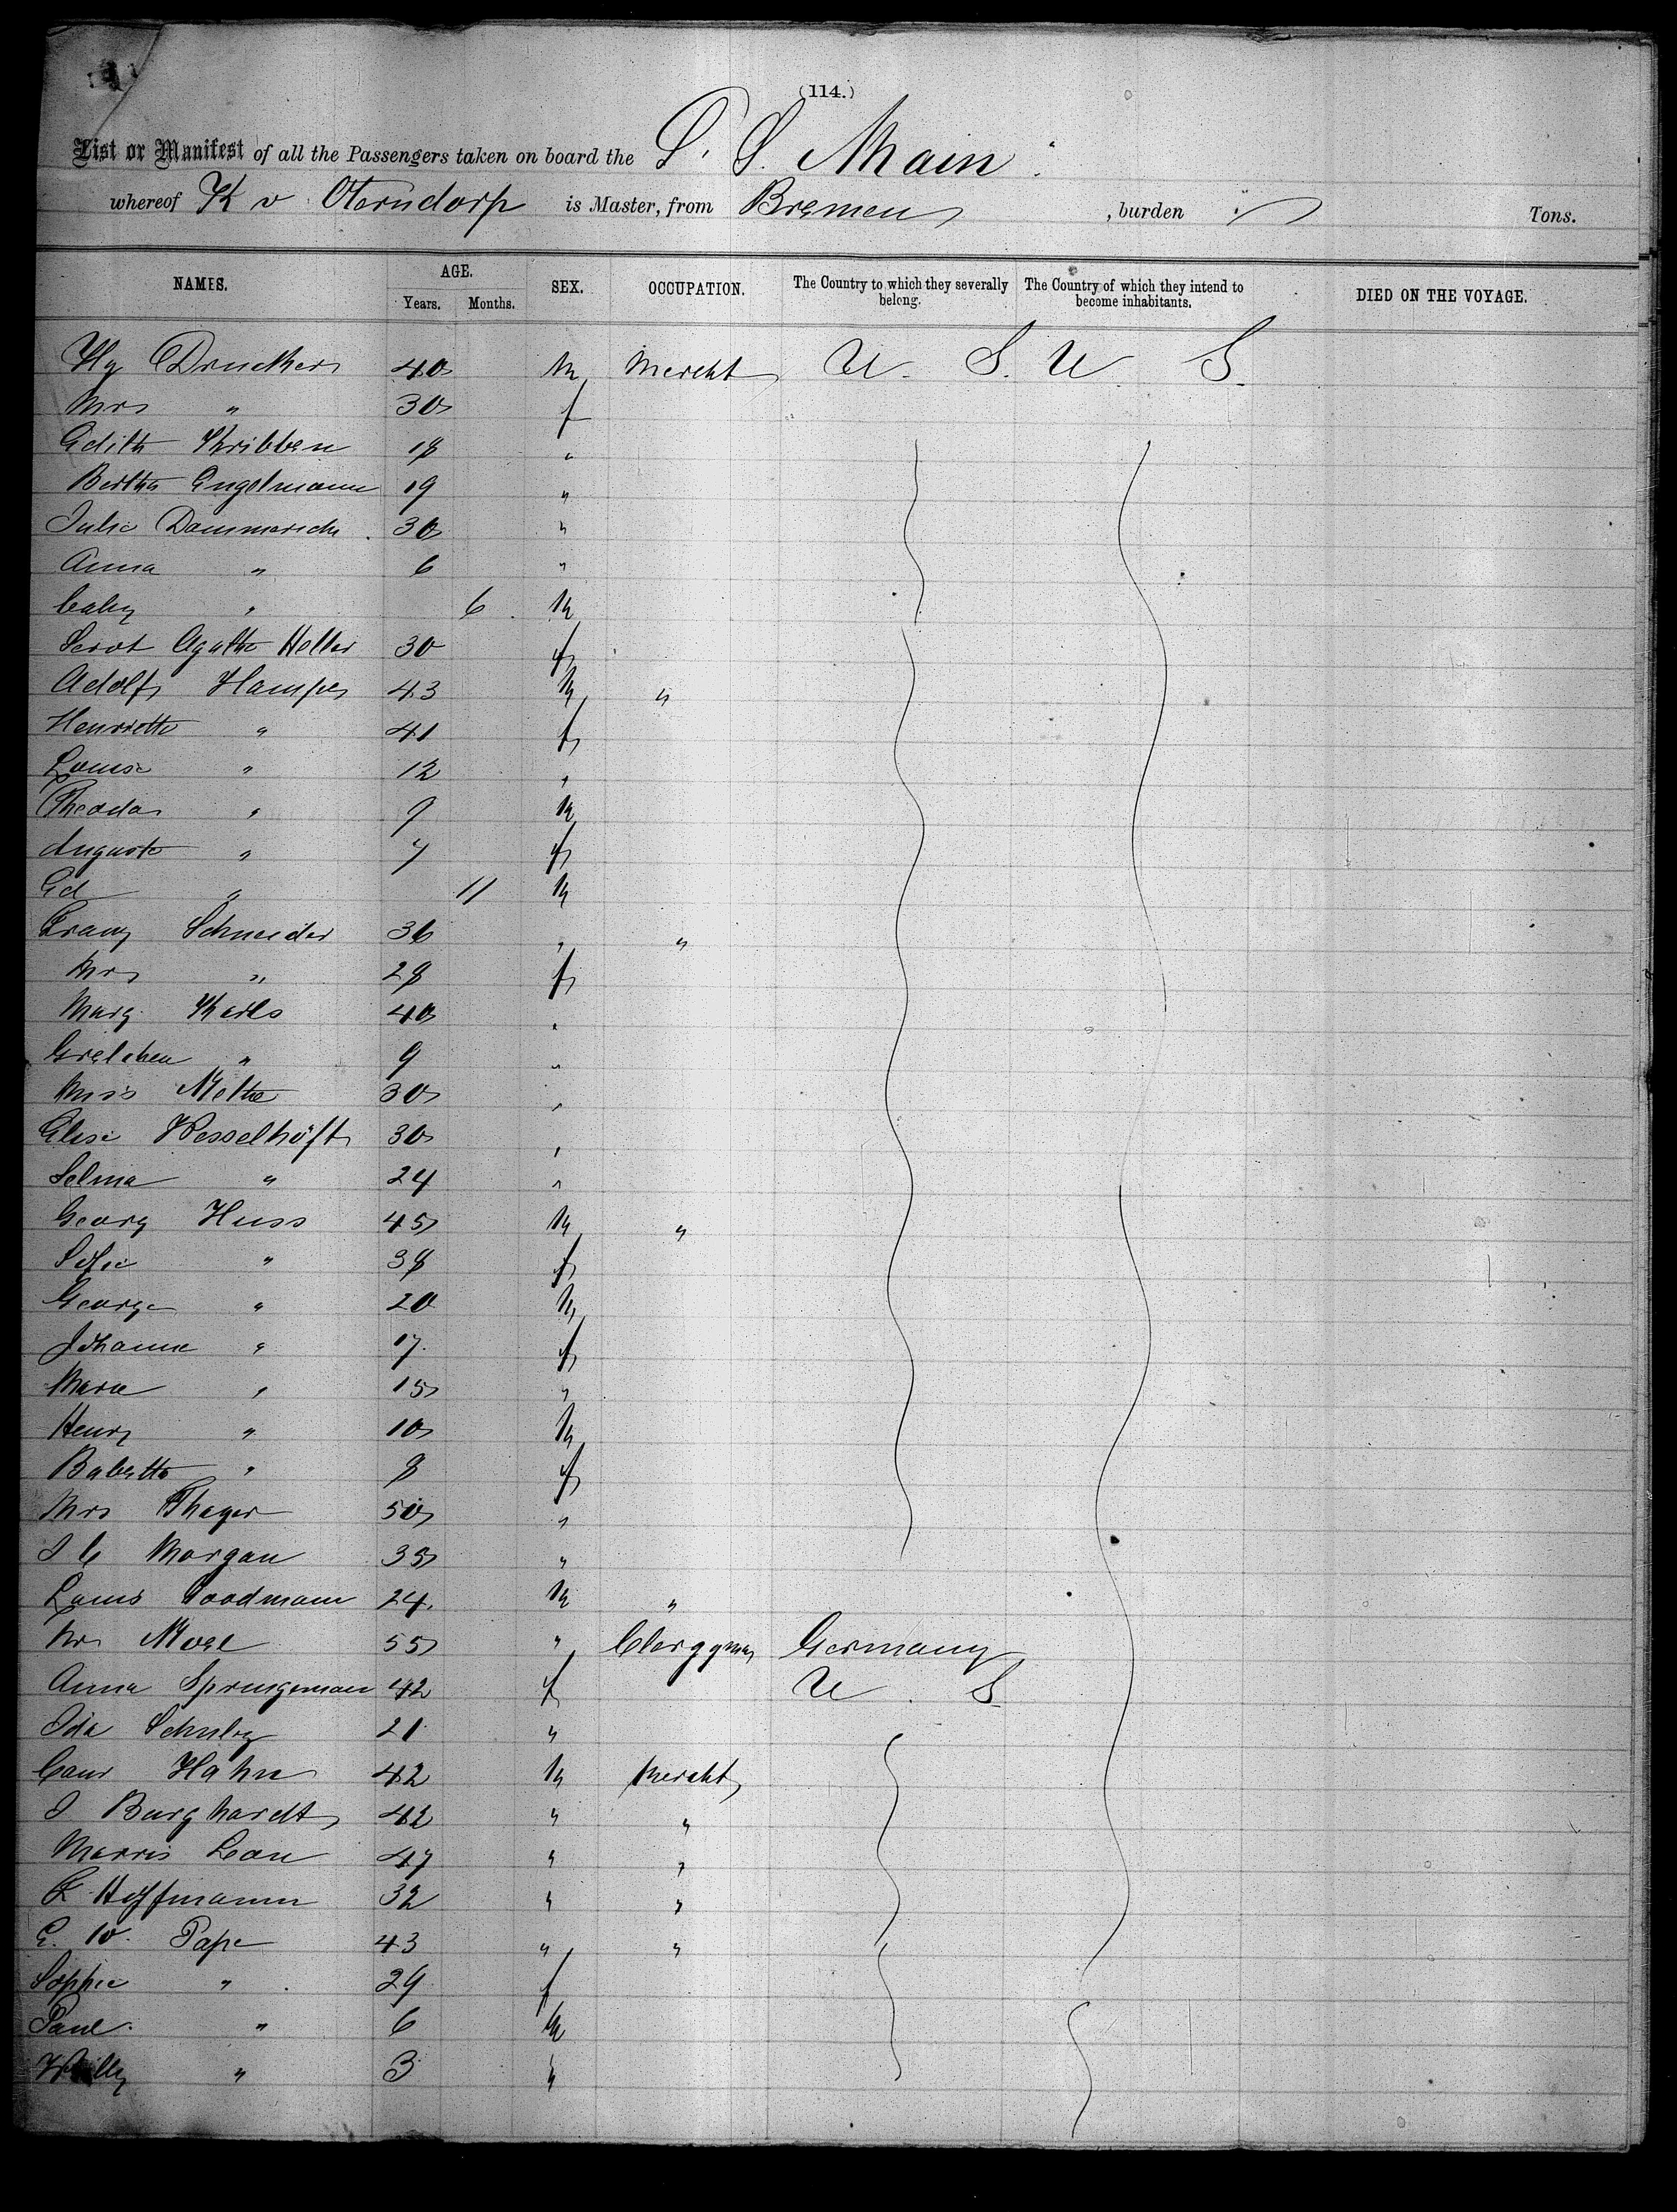 (114.)
List or Manifest of all the Passengers taken on board the S. S. Main
whereof K v Oterndorp is Master, from Bremen , burden Tons.
NAMES. AGE. SEX. OCCUPATION. The Country to which they severally belong. The Country of which they intend to become inhabitants. DIED ON THE VOYAGE.
Years. Months.
Hy Drucker 40 M Mercht U. S. U S.
Mrs " 30 f
Edith Kribben 18 "
Bertha Engelmann 19 "
Julie Dammerich 30 "
Anna " 6 "
baby " 6 M
Servt Agathe Heller 30 f
Adolf Hampe 43 M "
Henriette " 41 f
Louise " 12 "
Theodor " 9 M
Auguste " 7 f
Ed " 11 M
Franz Schneider 36 " "
Mrs " 28 f
Marg. Karls 40 "
Gretchen " 9 "
Miss 30 "
Elise Wesselhöft 30 "
Selma " 24 "
Georg Huss 45 M "
Sofie " 38 f
George " 20 M
Johanne " 17 f
Marie " 15 "
Henry " 10 M
Babette " 8 f
Mrs Thayer 50 "
J C Morgan 35 "
Louis Goodmann 24 M "
55 " Clergyman Germany
Anna Springeman 42 f U. S
Ida Schulz 21 "
Hahn 42 M Mercht
J Burghardt 42 " "
Morris Leon 47 " "
F Hoffmann 32 " "
E. W. Pape 43 " "
Sophie " 29 f
Paul " 6 M
Willy " 3 "